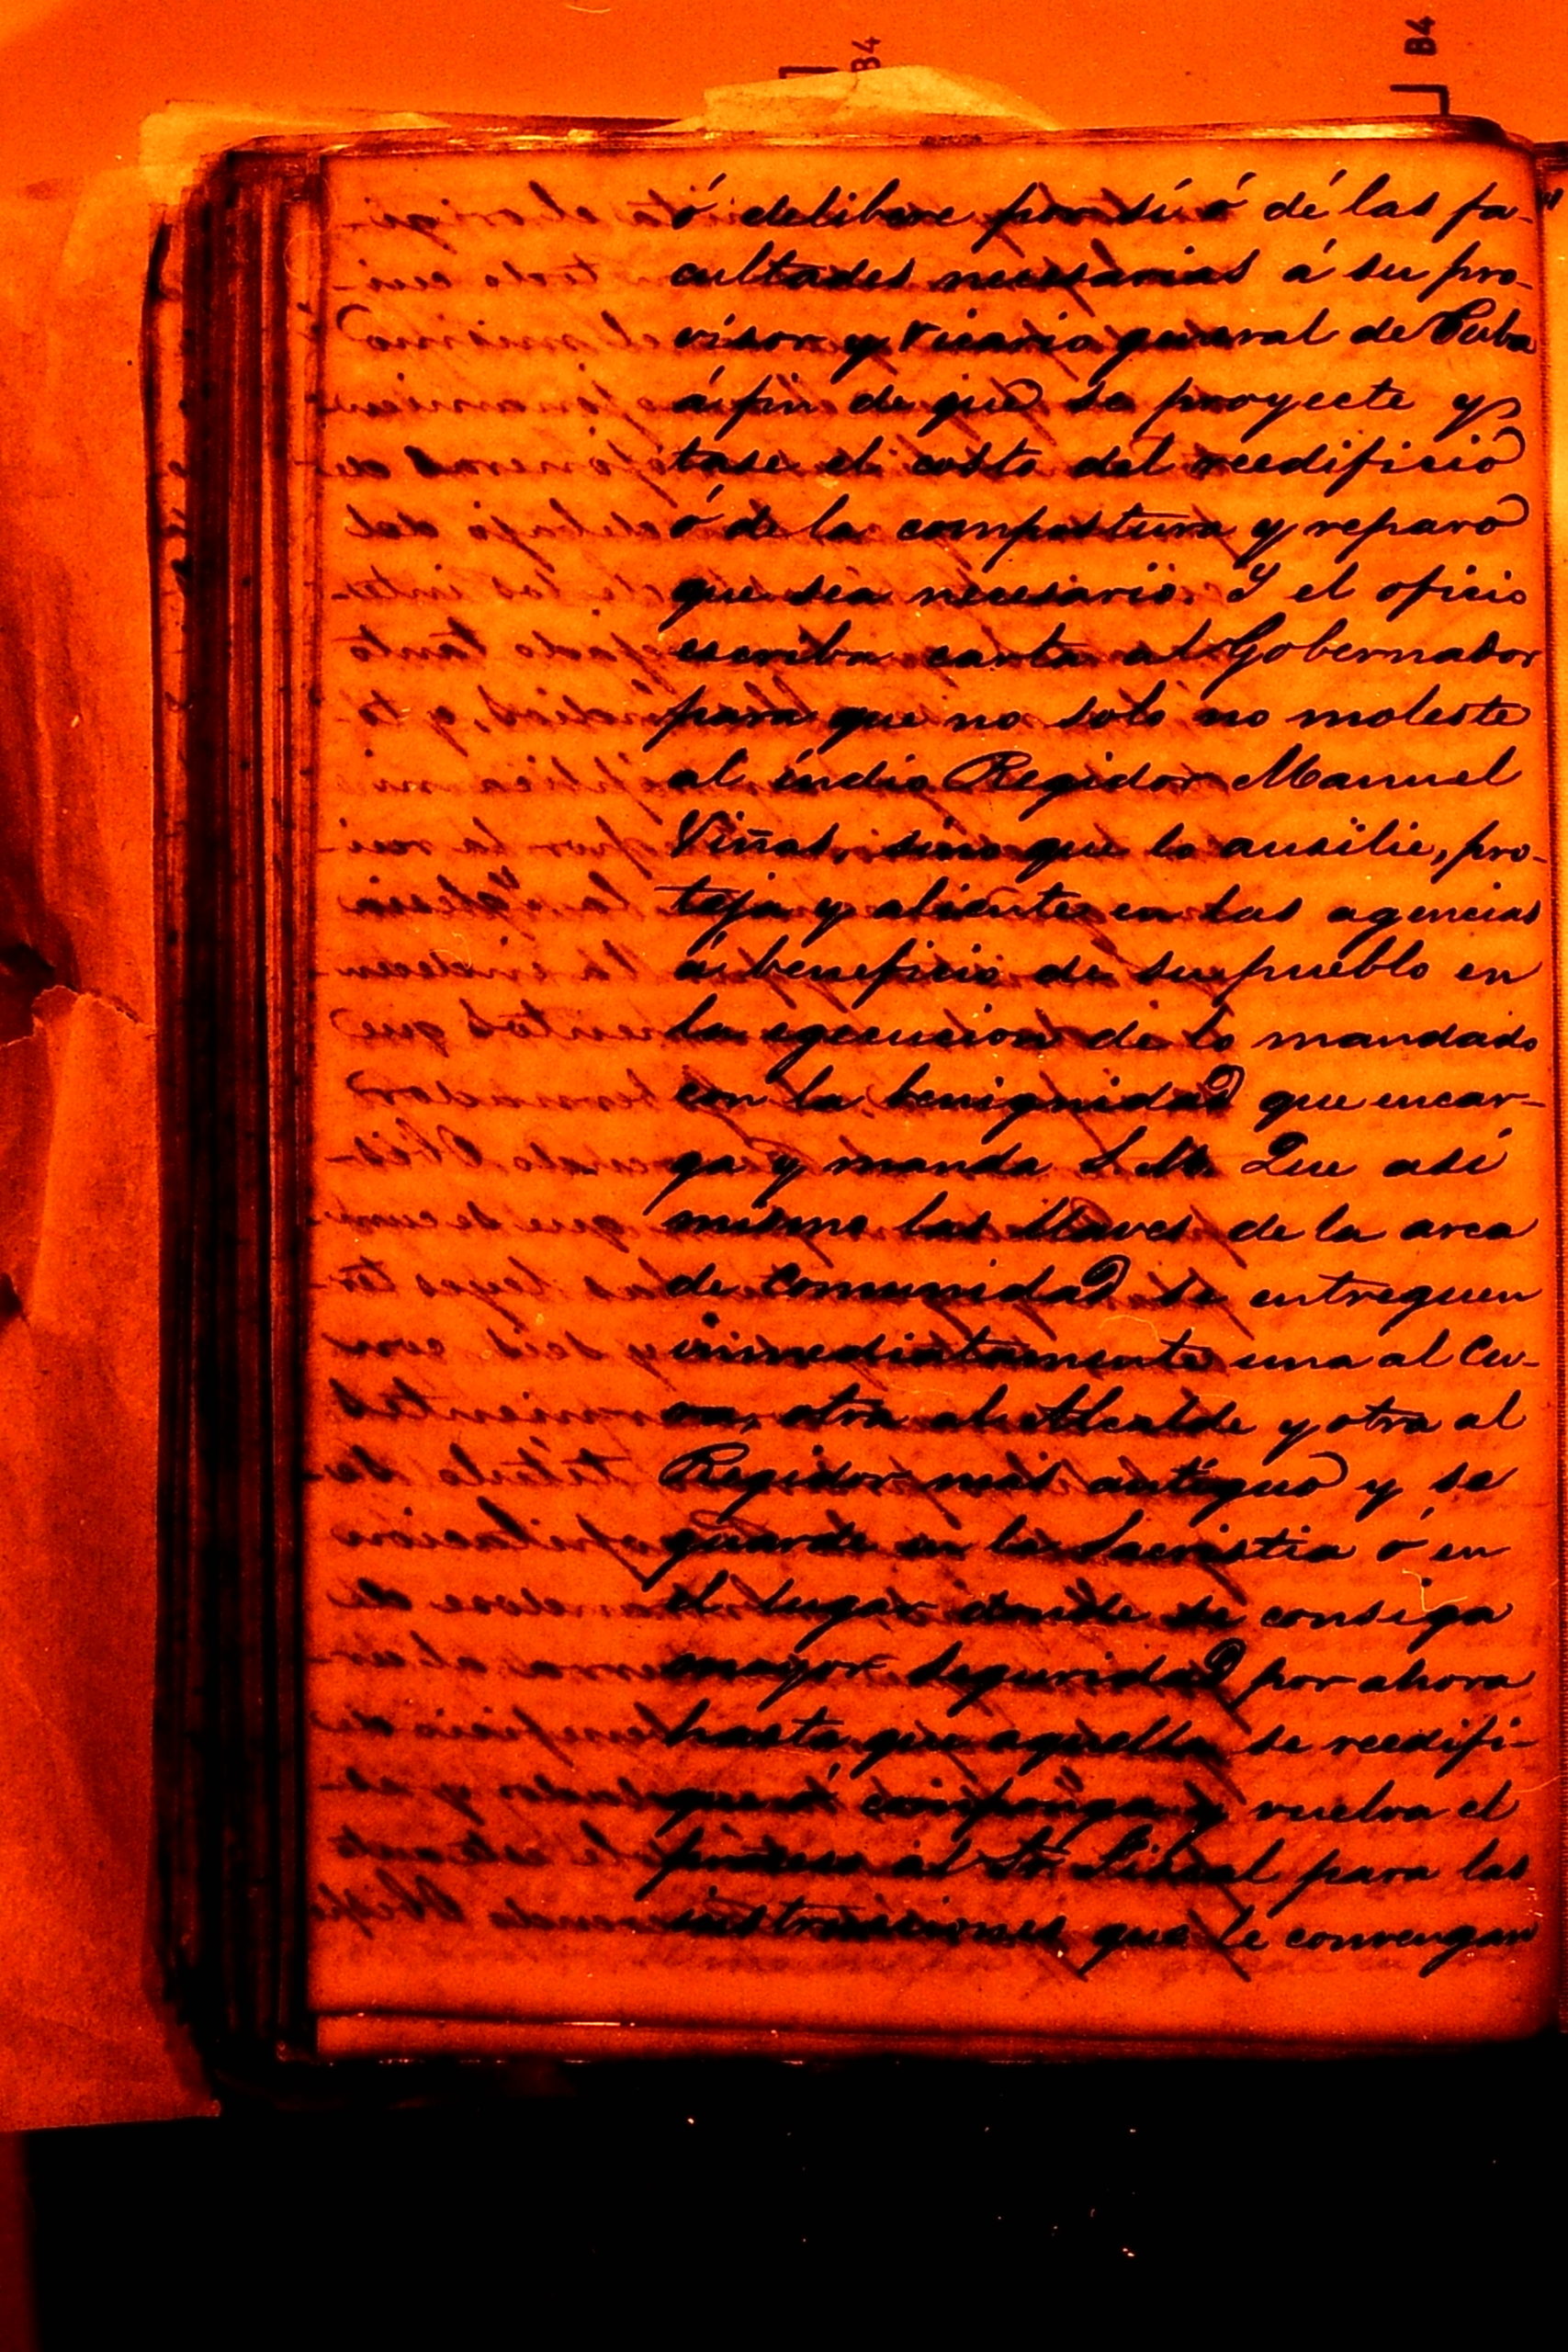 B4
B4
ó delibere por sí ó dé las fa-
cultades necesarias á su pro-
visor y Vicario general de Cuba
á fin de que se proyecte y
tase el costo del reedificio
ó de la compostura y reparo
que sea necesario. Y el oficio
escriba carta al Gobernador
para que no solo no moleste
al índio Regidor Manuel
Viñas, sino que lo ausilie, pro-
teja y aliente en las agencias
á beneficio de su pueblo en
la egecucion de lo mandado
con la benignidad que encar-
ga y manda S. M. Que así
mismo las llaves de la arca
de Comunidad se entreguen
inmediatamente una al Cu-
ra, otra al Alcalde y otra al
Regidor mas antíguo y se
guarde en la Sacristia ó en
el lugar donde se consiga
mayor seguridad por ahora
hasta que aquella se reedifi-
que ó componga y vuelva el
proceso al Sr. Fiscal para las
instrucciones que le convengan